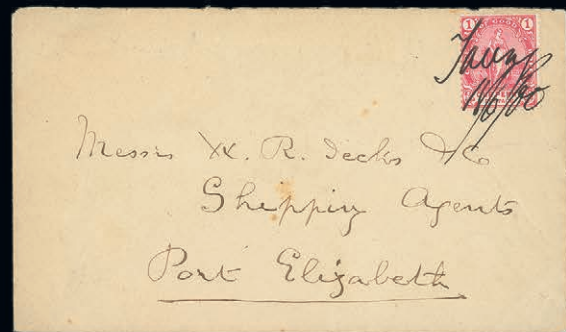 1 GOOD 1
Taungs
16/6/00
Messrs W. R. Decks & Co
Shipping Agents
Port Elizabeth